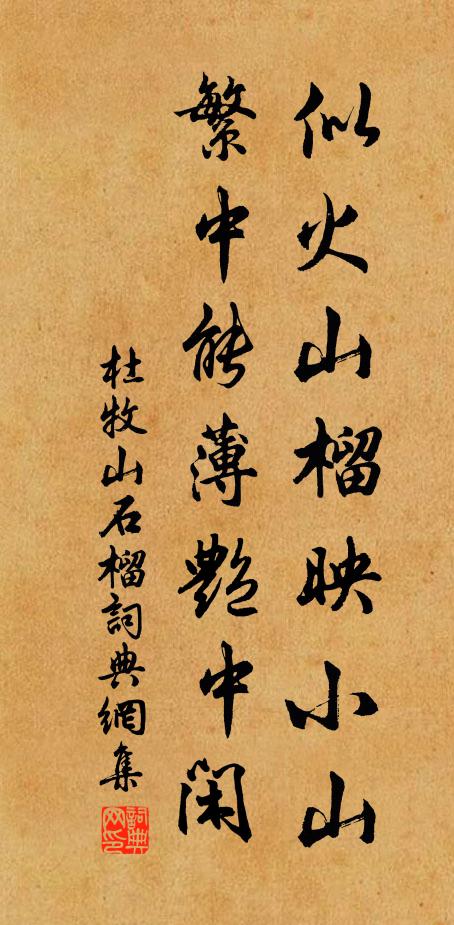 似火山榴映小山
繁中能薄艶中闲
杜牧山石榴詞典網集
詞典网印